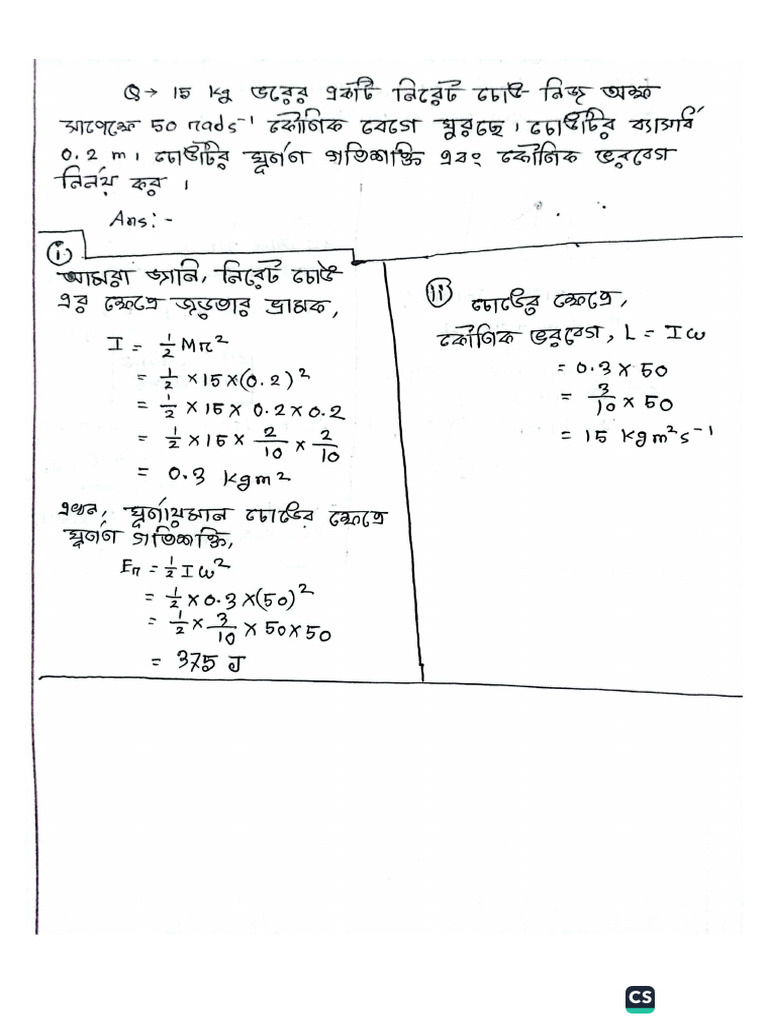 Q→ 15 kg ভরের একটি নিরেট চোঙ নিজ অক্ষ
সাপেক্ষে 50 rads⁻¹ কৌণিক বেগে ঘুরছে। চোঙটির ব্যাসার্ধ
0.2 m। চোঙটির ঘূর্ণণ গতিশক্তি এবং কৌণিক ভরবেগ
নির্নয় কর।
Ans:-
i
আমরা জানি, নিরেট চোঙ
এর ক্ষেত্রে জড়তার ভ্রামক,
I = ½ Mr²
= ½ ×15×(0.2)²
= ½ ×15× 0.2×0.2
= ½ ×15× 2/10 × 2/10
= 0.3 kgm²
এখন, ঘূর্ণায়মান চোঙের ক্ষেত্রে
ঘূর্ণণ গতিশক্তি,
Er = ½ I ω²
= ½ × 0.3 ×(50)²
= ½ × 3/10 × 50×50
= 375 J
ii চোঙের ক্ষেত্রে,
কৌণিক ভরবেগ, L = Iω
= 0.3 × 50
= 3/10 × 50
= 15 kgm²s⁻¹
CS